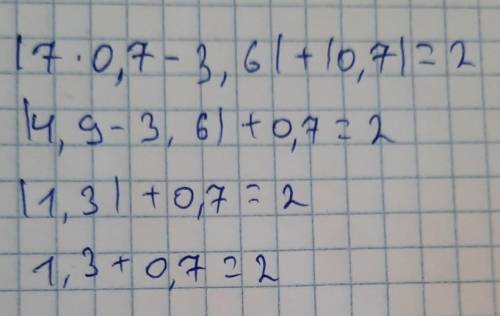 |7·0,7-3,6|+|0,7|=2
|4,9-3,6|+0,7=2
|1,3|+0,7=2
1,3+0,7=2